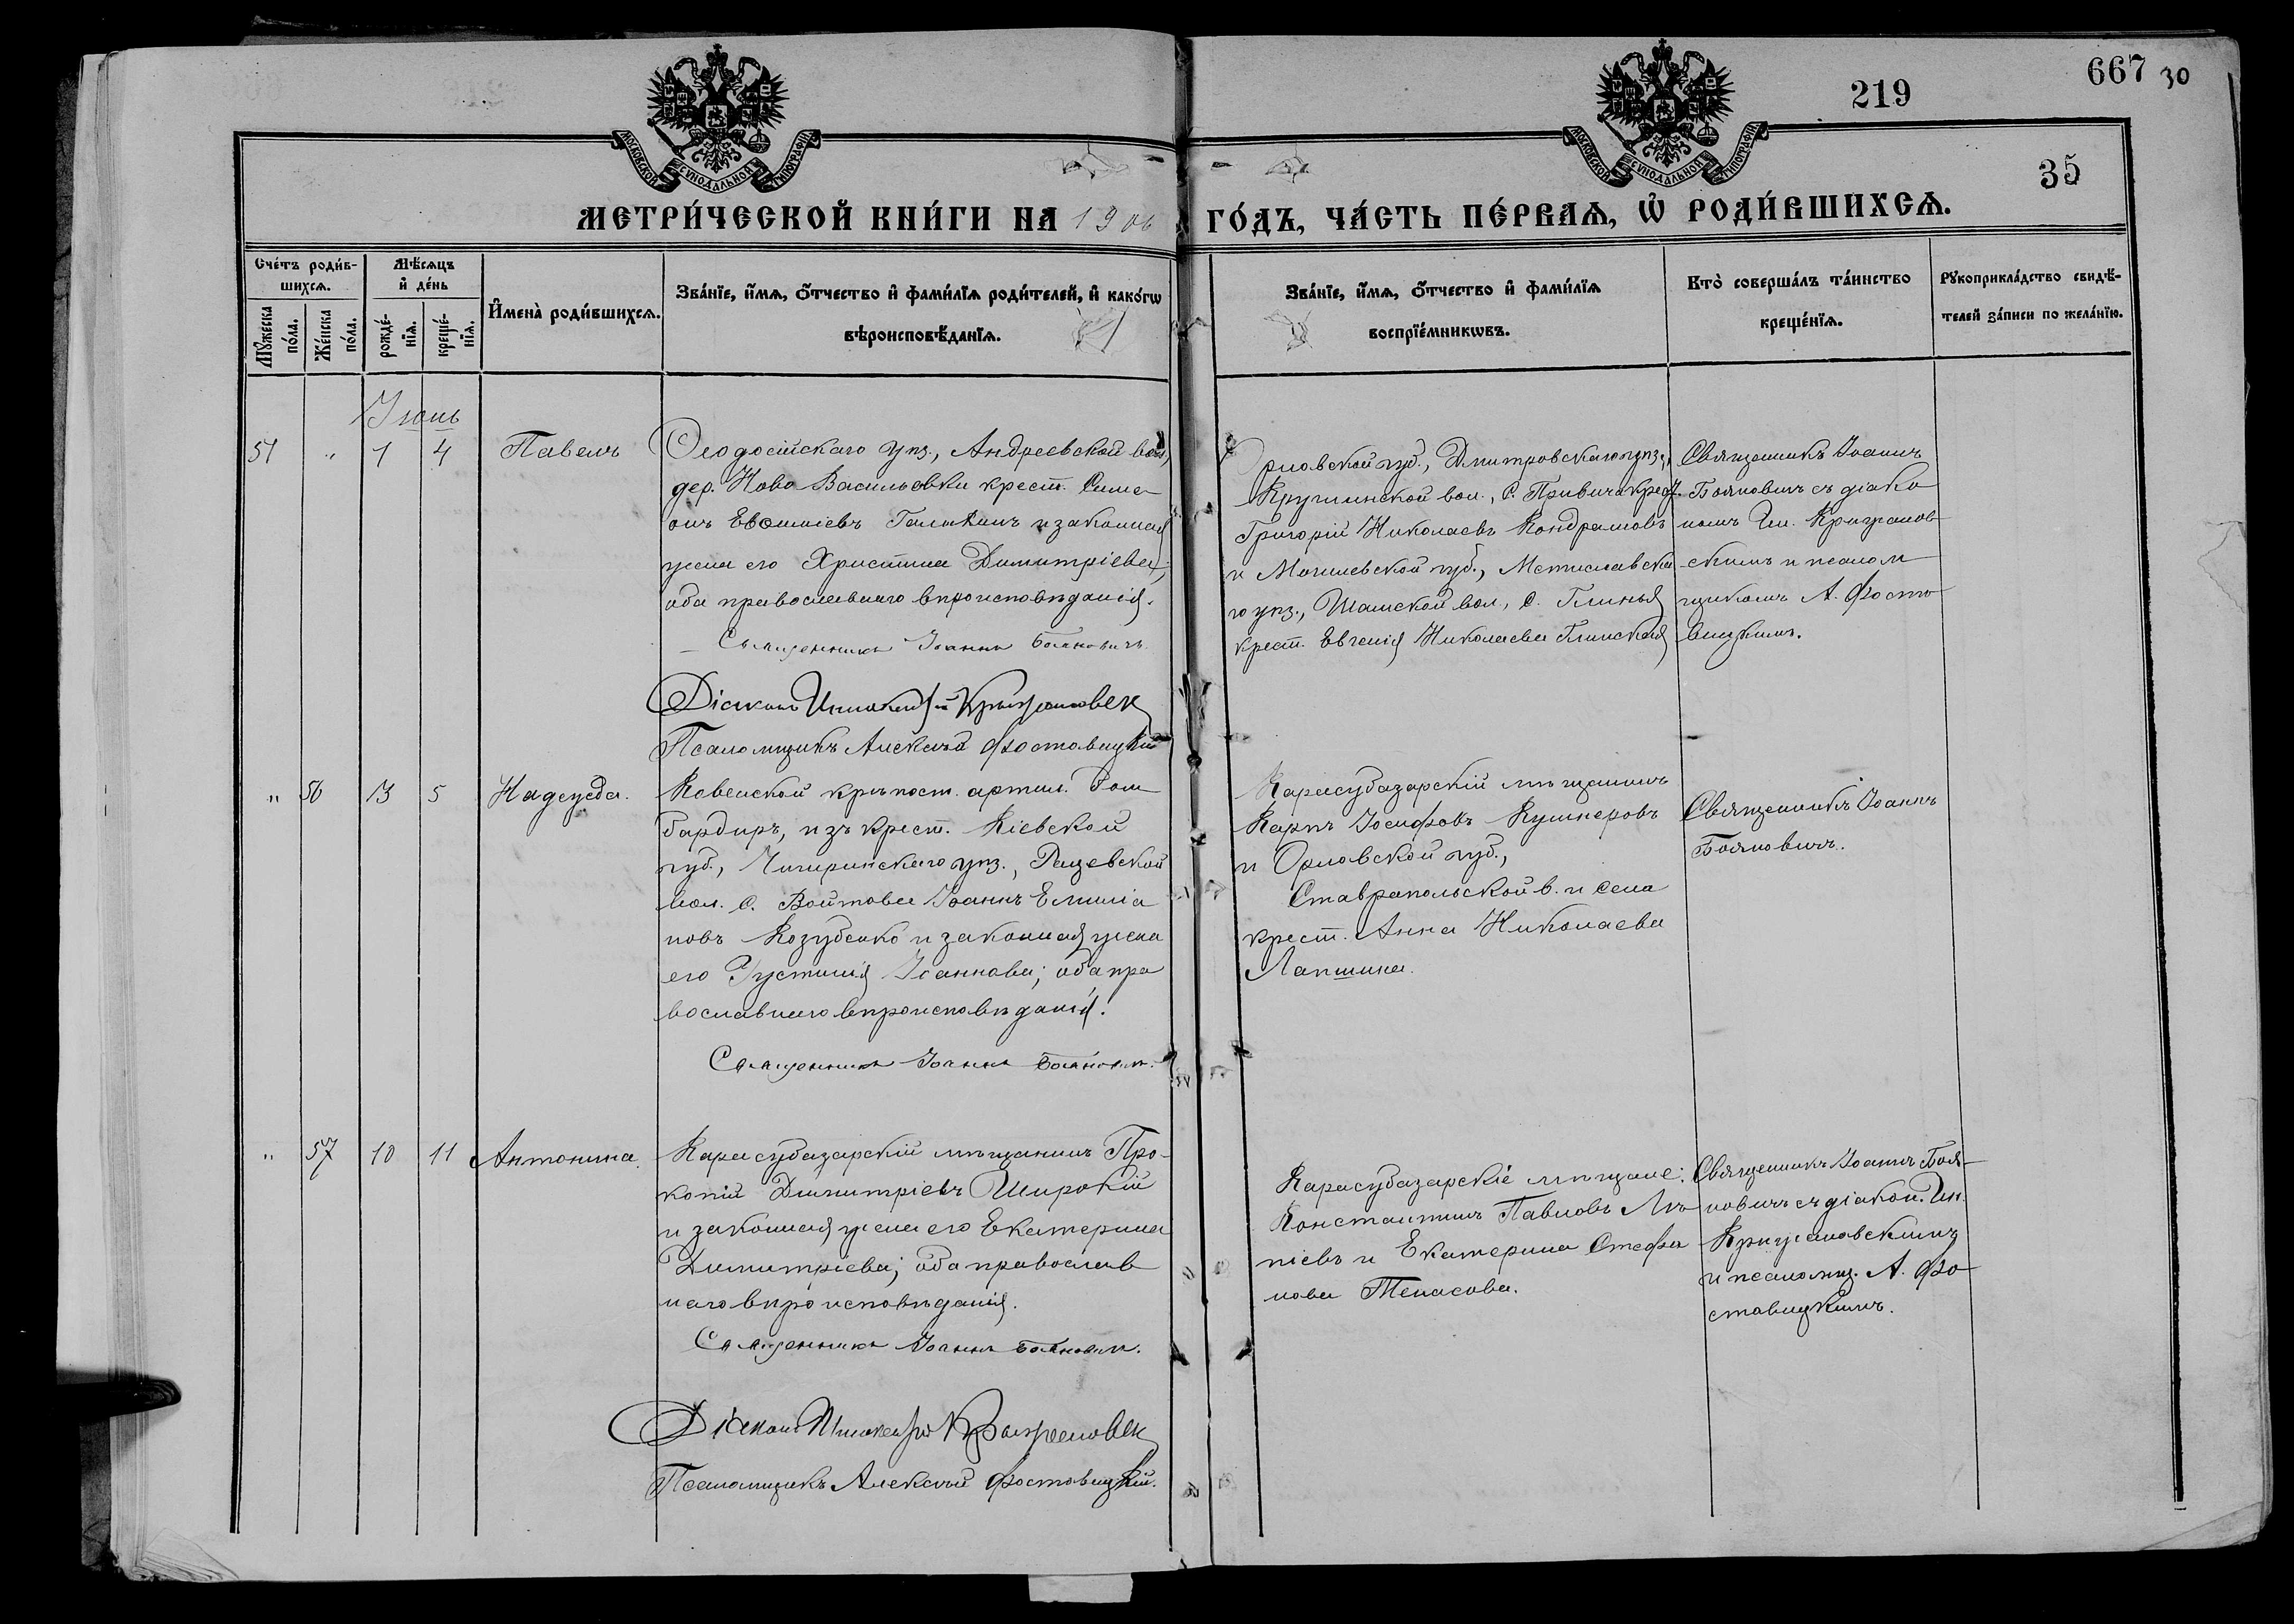 667 30
219
35
МОСКОВСКОЙ СУНОДАЛЬНОЙ ТИПОГРАФІИ
МОСКОВСКОЙ СУНОДАЛЬНОЙ ТИПОГРАФІИ
МЕТРИ́ЧЕСКОЙ КНИ́ГИ НА 1906
ГО́ДЪ, ЧА́СТЬ ПЕ́РВАЯ, Ѡ РОДИ́ВШИХСЯ.
Сче́тъ роди́в-
шихся.
Мѣ́сяцъ
и҆ де́нь
Мꙋ́жеска
по́ла.
Же́нска
по́ла.
рожде́-
нїя.
креще́-
нїя.
И҆мена̀ роди́вшихся.
Зва́нїе, и҆́мя, ѻ҆́тчество и҆ фами́лїя роди́телей, и҆ како́гѡ
вѣроисповѣ́данїя.
Зва́нїе, и҆́мя, ѻ҆́тчество и҆ фами́лїя
воспрїе́мникѡвъ.
Кто̀ соверша́лъ та́инство
креще́нїя.
Рꙋкоприкла́дство свидѣ́-
телей за́писи по жела́нїю.
Іюнь
51 " 1 4 Павелъ
Ѳеодосійскаго уѣз., Андреевской вол.,
дер. Ново Васильевки крест. Симе
онъ Галкинъ и законная
жена его Христина Димитріева;
оба православнаго вѣроисповѣданія.
Священникъ Іоаннъ Бояновичъ
Діаконъ
Псаломщикъ Алексѣй Фостовицкій
Орловской губ., Дмитровскаго уѣз.,
вол., с. крест.
Григорій Николаевъ Кондрашовъ
и Могилевской губ., Мстиславска
го уѣз., Шамской вол., с. Глинья
крест. Евгенія Николаева Глинская
Священникъ Іоаннъ
Бояновичъ съ діако
номъ Ин.
скимъ и псалом
щикомъ А. Фосто
вицкимъ.
" 56 13 5 Надежда.
Ковенской крѣпост. артил. Бом
бардиръ, изъ крест. Кіевской
губ., Чигиринскаго уѣз., Рацевской
вол. с. Войтова Іоаннъ Емиліа
новъ Козубенко и законная жена
его Іустинія Іоаннова; оба пра
вославнаго вѣроисповѣданія.
Священникъ Іоаннъ Бояновичъ.
Карасубазарскій мѣщанинъ
Карпъ Іосифовъ Кушнеровъ
и Орловской губ.,
Ставрапольской в. и села
крест. Анна Николаева
Лапшина.
Священникъ Іоаннъ
Бояновичъ.
" 57 10 11 Антонина.
Карасубазарскій мѣщанинъ Про-
копій Димитріевъ Широкій
и законная жена его Екатерина
Димитріева; оба православ
наго вѣроисповѣданія.
Священникъ Іоаннъ Бояновичъ.
Діаконъ
Псаломщикъ Алексѣй Фостовицкій.
Карасубазарскіе мѣщане:
Константинъ Павловъ
и Екатерина Стефа
нова
Священникъ Іоаннъ Боя-
новичъ съ діакон. Ин.
и псаломщ. А. Фо
стовицкимъ.